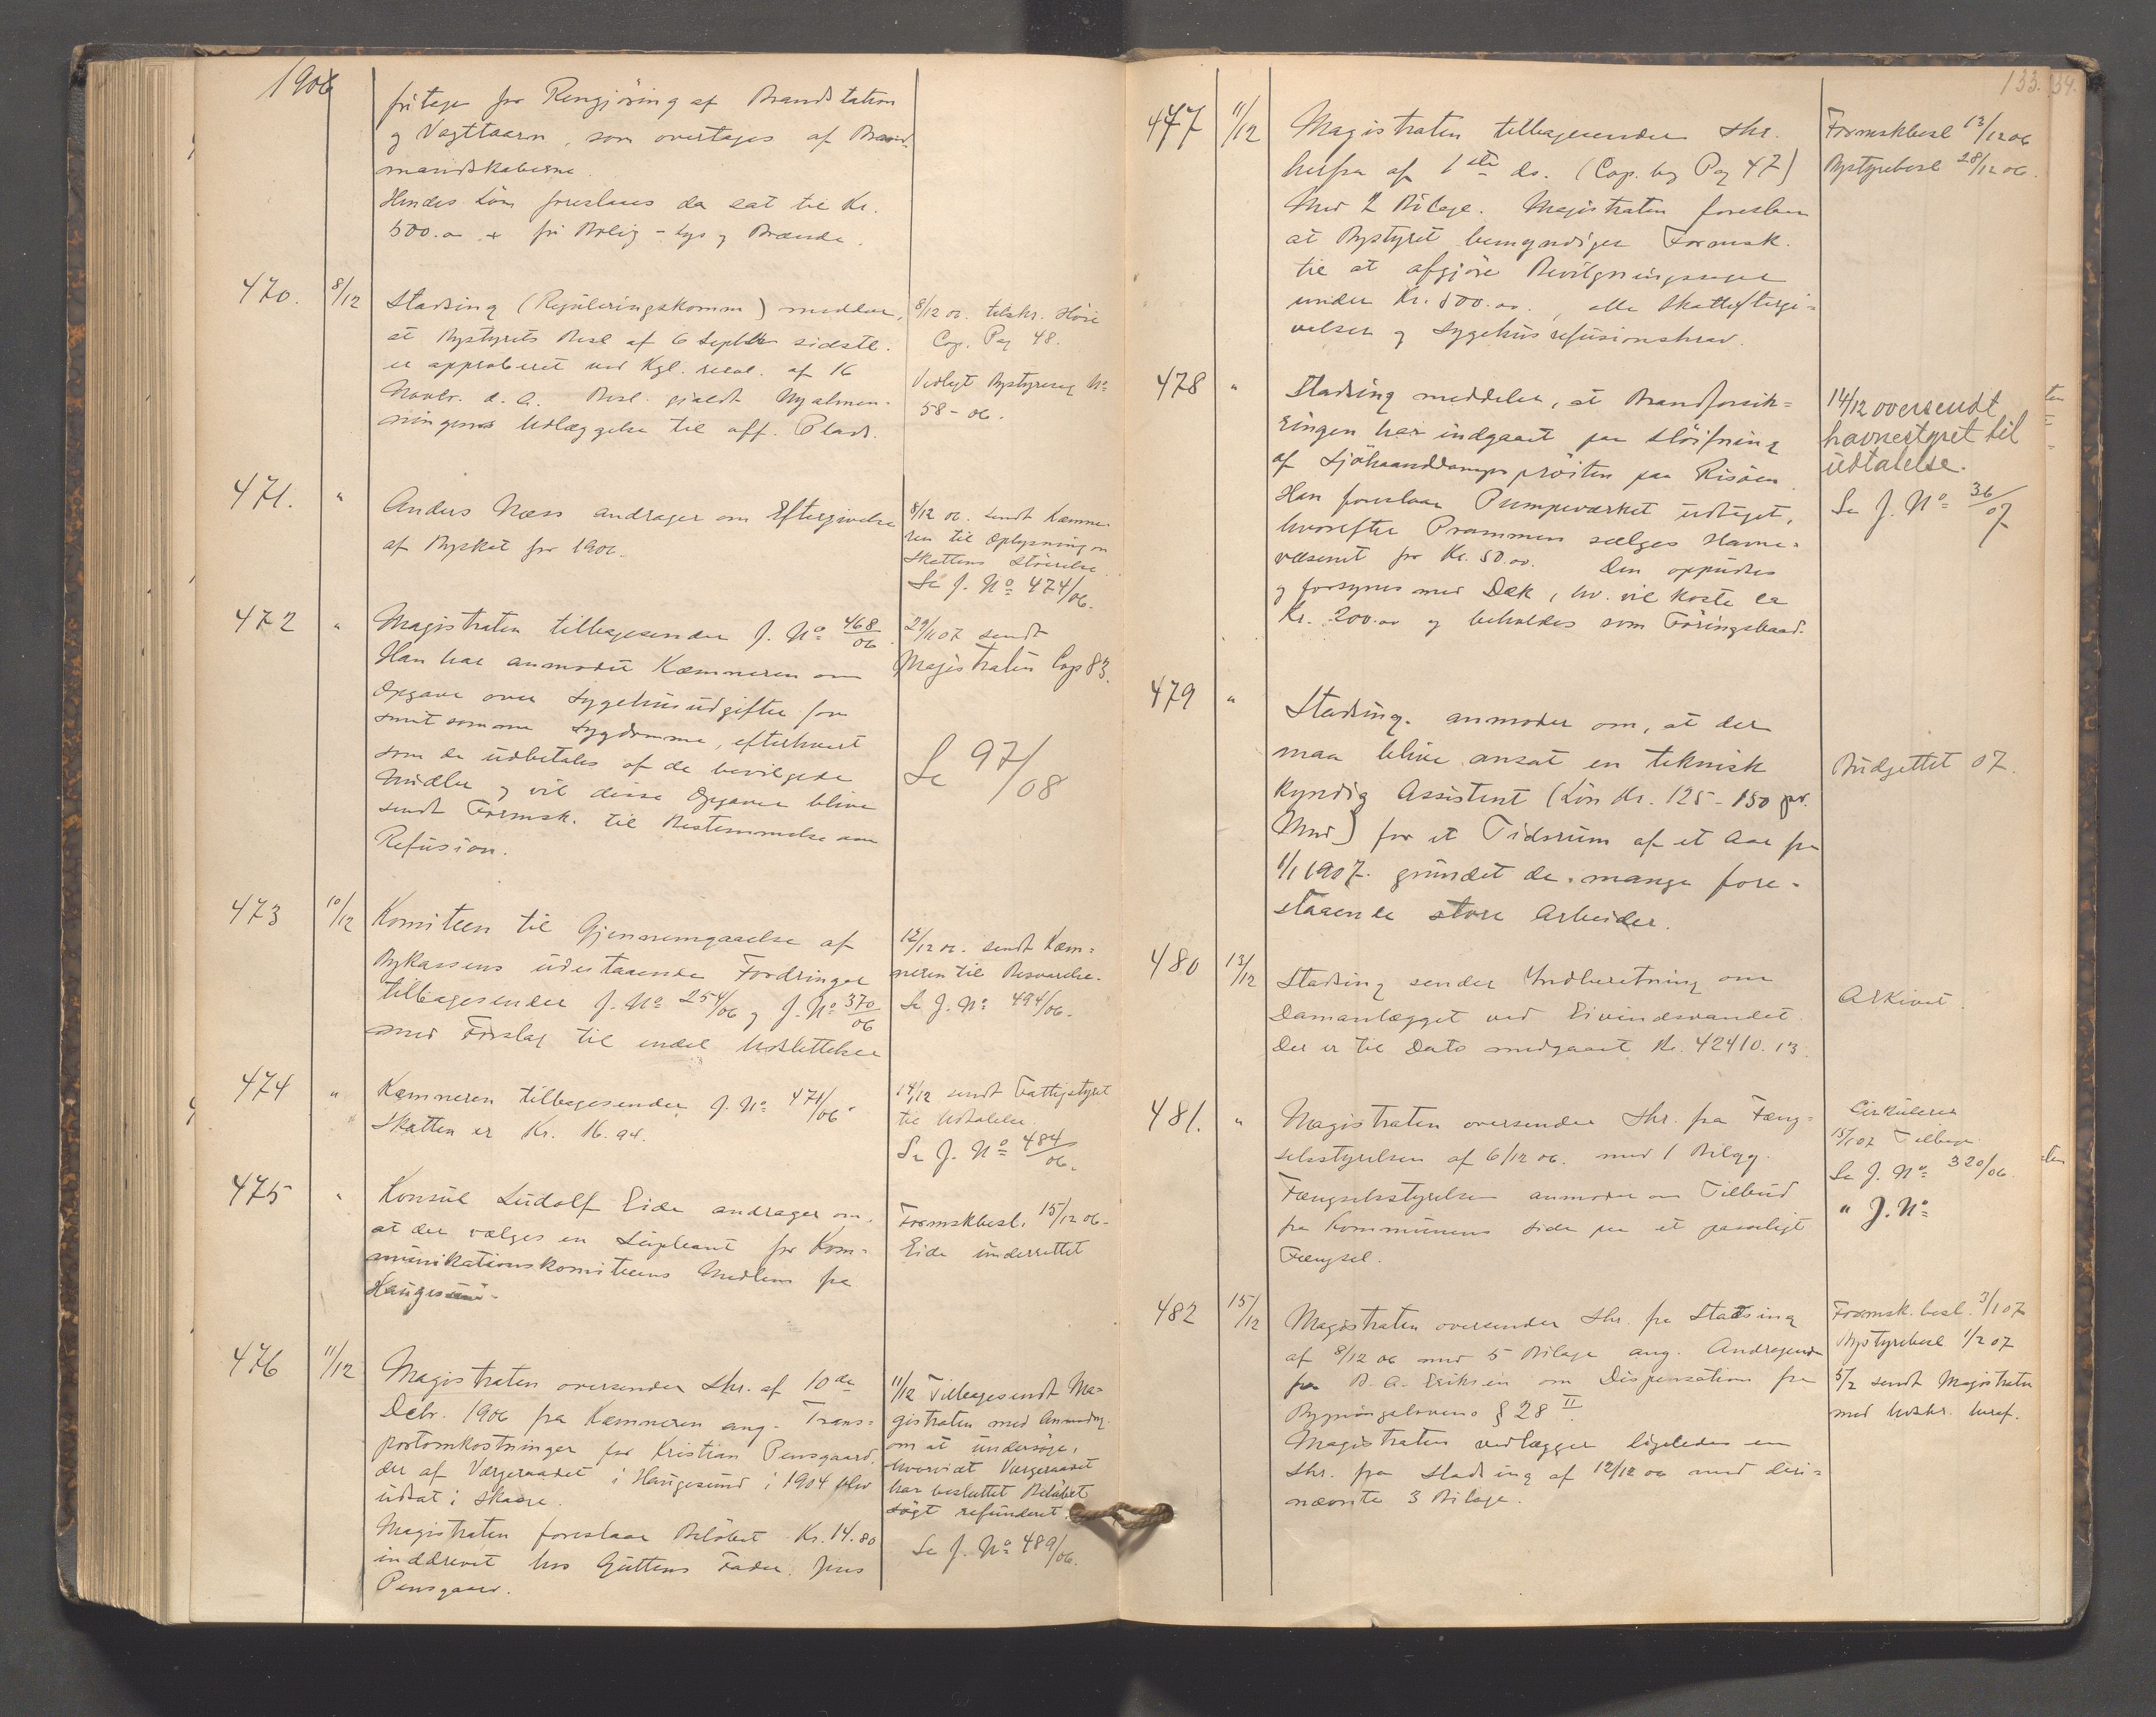 1906
fritages for Rengjöring af Brandstation
og Vagttaarn, som overtages af Brand-
mandskaberne.
Hendes Lön foreslaaes da sat til Kr.
500.00 + fri Bolig - Lys og Brænde.
470. 8/12 Stadsing (Reguleringskomm) meddeler,
at Bystyrets Besl af 6 Septbr sidstl.
er approberet ved Kgl. resol. af 16
Novbr. d. A. Besl. gjaldt Nyalmen-
ningens Udlæggelse til off. Plads.
8/12 06. tilskr. Höie
Cop. Pag 48.
Vedlagt Bystyresag No
58-06.
471. " Anders Næss andrager om Eftergivelse
af Byskat for 1906.
8/12 06. sendt Kæmne-
ren til Oplysning om
Skattens Störrelse.
Se J. No 474/06.
472 " Magistraten tilbagesender J. No 468/06.
Han har anmodet Kæmneren om
Opgave over Sygehusudgifter for
smitsomme Sygdomme, efterhvert
som de udbetales af de bevilgede
Midler og vil disse Opgaver blive
sendt Formsk. til Bestemmelse om
Refusion.
29/1 07 sendt
Magistraten Cop 83.
Se 97/08
473 10/12 Komiteen til Gjennemgaaelse af
Bykassens udestaaende Fordringer
tilbagesender J. No 254/06 og J. No 370/06
med Forslag til endel Udslettelser
12/12 06. sendt Kæm-
neren til Besvarelse.
Se J. No 494/06.
474 " Kæmneren tilbagesender J. No 471/06.
Skatten er Kr. 16.94.
14/12 sendt Fattigstyret
til Udtalelse.
Se J. No 484/06.
475 " Konsul Ludolf Eide andrager om,
at der vælges en Supleant for Kom-
munikationskomiteens Medlem fra
Haugesund.
Formskbesl. 15/12 06.
Eide underrettet
476 11/12 Magistraten oversender Skr. af 10de
Debr. 1906 fra Kæmneren ang. Trans-
portomkostninger for Kristian Pensgaard,
der af Værgeraadet i Haugesund i 1904 blev
udsat i Skaare.
Magistraten foreslaar Belöbet Kr. 14.80
inddrevet hos Guttens Fader. Jens
Pensgaard.
11/12 Tilbagesendt Ma-
gistraten med Anmodng.
om at undersöge,
hvorvidt Værgeraadet
har besluttet Belöbet
sögt refunderet.
Se J. No 489/06.
133. 134.
477 11/12 Magistraten tilbagesender Skr.
herfra af 1ste ds. (Cop. bog Pag 47)
Med 2 Bilage. Magistraten foreslaar
at Bystyret bemyndiger Formsk.
til at afgjöre Bevilgningssager
under Kr. 500.00, alle Skatteeftergi-
velser og Sygehusrefusionskrav.
Formskbesl 13/12 06
Bystyrebesl 28/12 06.
478 " Stadsing meddeler, at Brandforsik-
ringen har indgaaet paa Slöifning
af Sjöhaanddampspröiten paa Risöen.
Han foreslaar Pumpeværket udtaget,
hvorefter Prammen sælges Havne-
væsenet for Kr. 50.00. Den oppudses
og forsynes med Dæk, hv. vil koste ca
Kr. 200.00 og beholdes som Föringsbaad.
14/12 oversendt
havnestyret til
udtalelse.
Se J. No 36/07
479 " Stadsing. anmoder om, at der
maa blive ansat en teknisk
kyndig Assistent (Lön Kr. 125-150 pr.
Mnd) for et Tidsrum af et Aar fra
1/1 1907. grundet de mange fore-
staaende store Arbeider.
Budgettet 07.
480 13/12 Stadsing sender Indberetning om
Damanlægget ved Eivindsvandet.
Der er til Dato medgaaet Kr. 42410.13.
Arkivet.
481. " Magistraten oversender Skr. fra Fæng-
selsstyrelsen af 6/12 06. med 1 Bilag.
Fængselsstyrelsen anmoder om Tilbud
fra Kommunens Side paa et passeligt
Fængsel.
Cirkulerer
15/1 07 Tilbage
Se J. No 320/06.
" J. No
482 15/12 Magistraten oversender Skr. fra Stadsing
af 8/12 06 med 5 Bilage ang. Andragende
fra B. A. Eriksen om Dispensation fra
Bygningslovens § 28 II.
Magistraten vedlægger ligeledes en
Skr. fra Stadsing af 12/12 06 med deri-
nævnte 3 Bilage.
Formsk.besl. 3/1 07
Bystyrebesl 1/2 07
5/2 sendt Magistraten
med Udskr. heraf.